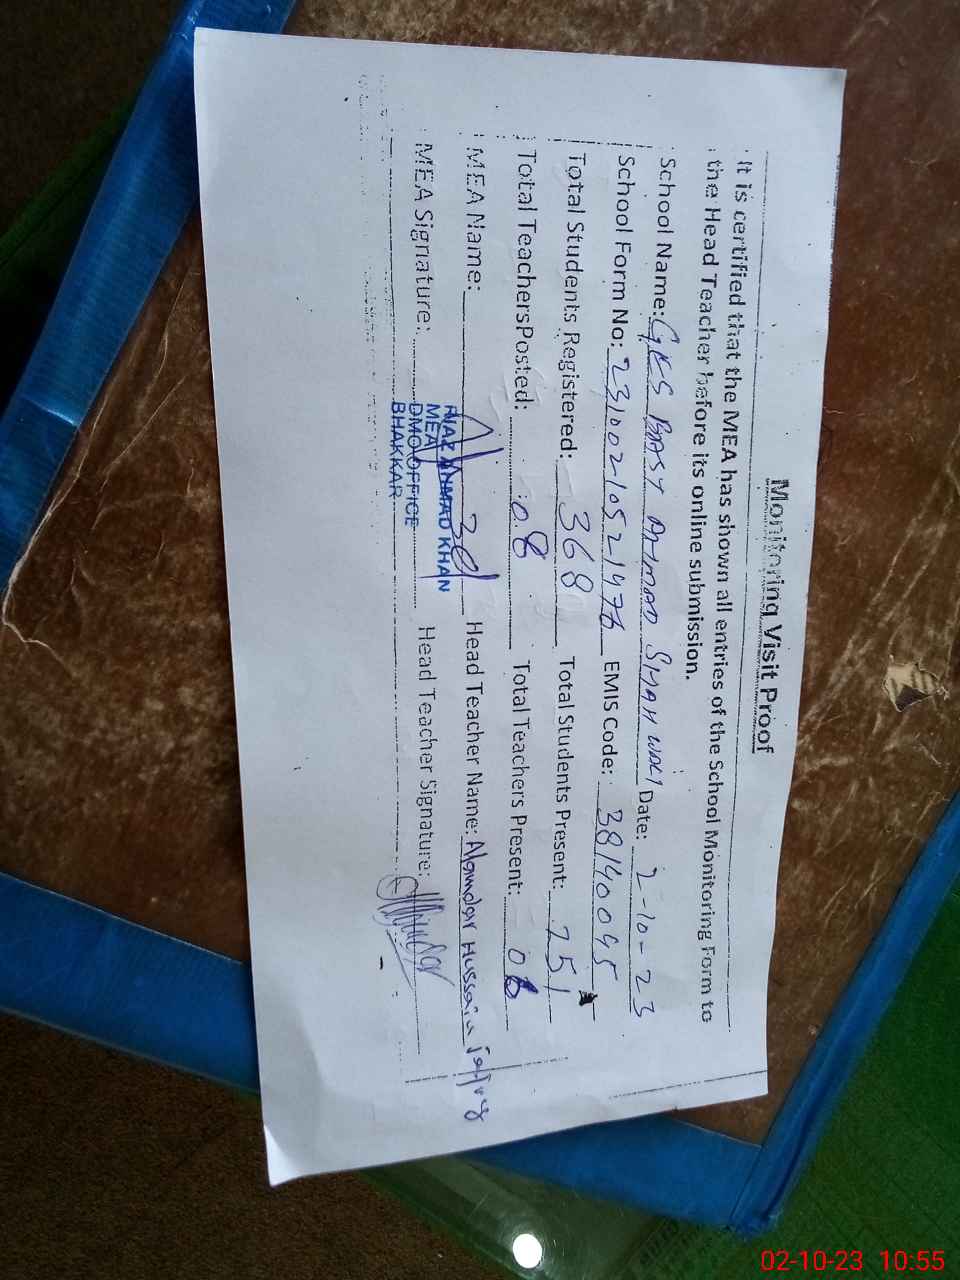 Monitoring Visit Proof
It is certified that the MEA has shown all entries of the School Monitoring Form to
the Head Teacher before its online submission.
School Name: GES BASTI AHMAD SHAH WALI Date: 2-10-23
School Form No: 231002-1052-1976 EMIS Code: 38140095
Total Students Registered: 368 Total Students Present: 251
Total TeachersPosted: 08 Total Teachers Present: 06
MEA Name: Head Teacher Name: Alamdar Hussain
MEA Signature: Head Teacher Signature:
NIAZ AHMAD KHAN
MEA
DMO OFFICE
BHAKKAR
02-10-23 10:55